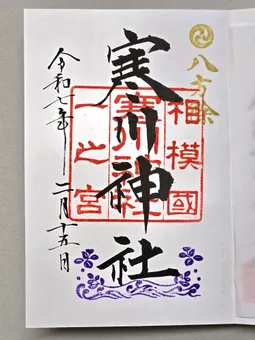 八方除
相模國
一之宮
寒川神社
令和七年二月十五日